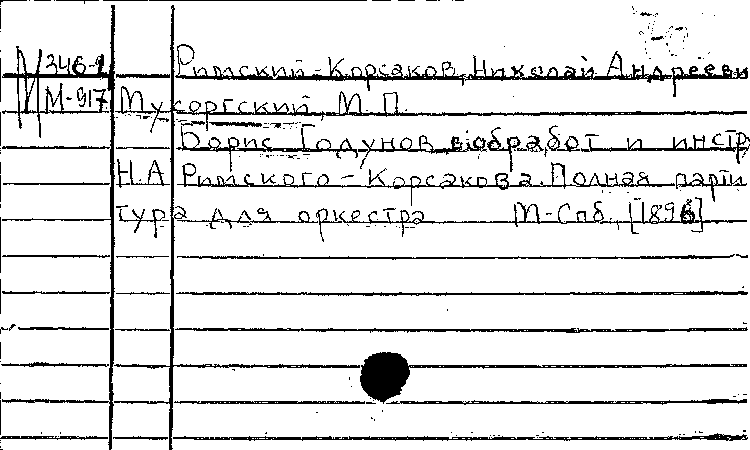 70
346-1 Римский-Корсаков, Николай Андрееви
М-917 Мусоргский, М. П.
Борис Годунов в обработ и инстр
Н.А Римского-Корсакова. Полная парти
тура для оркестра М-Спб., [1896]